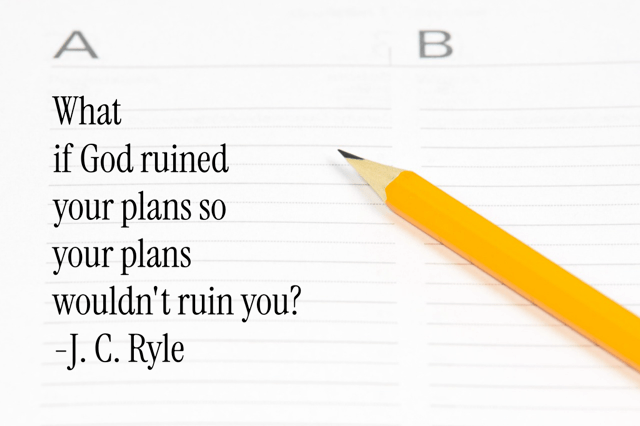 A
B
What
if God ruined
your plans so
your plans
wouldn't ruin you?
-J. C. Ryle